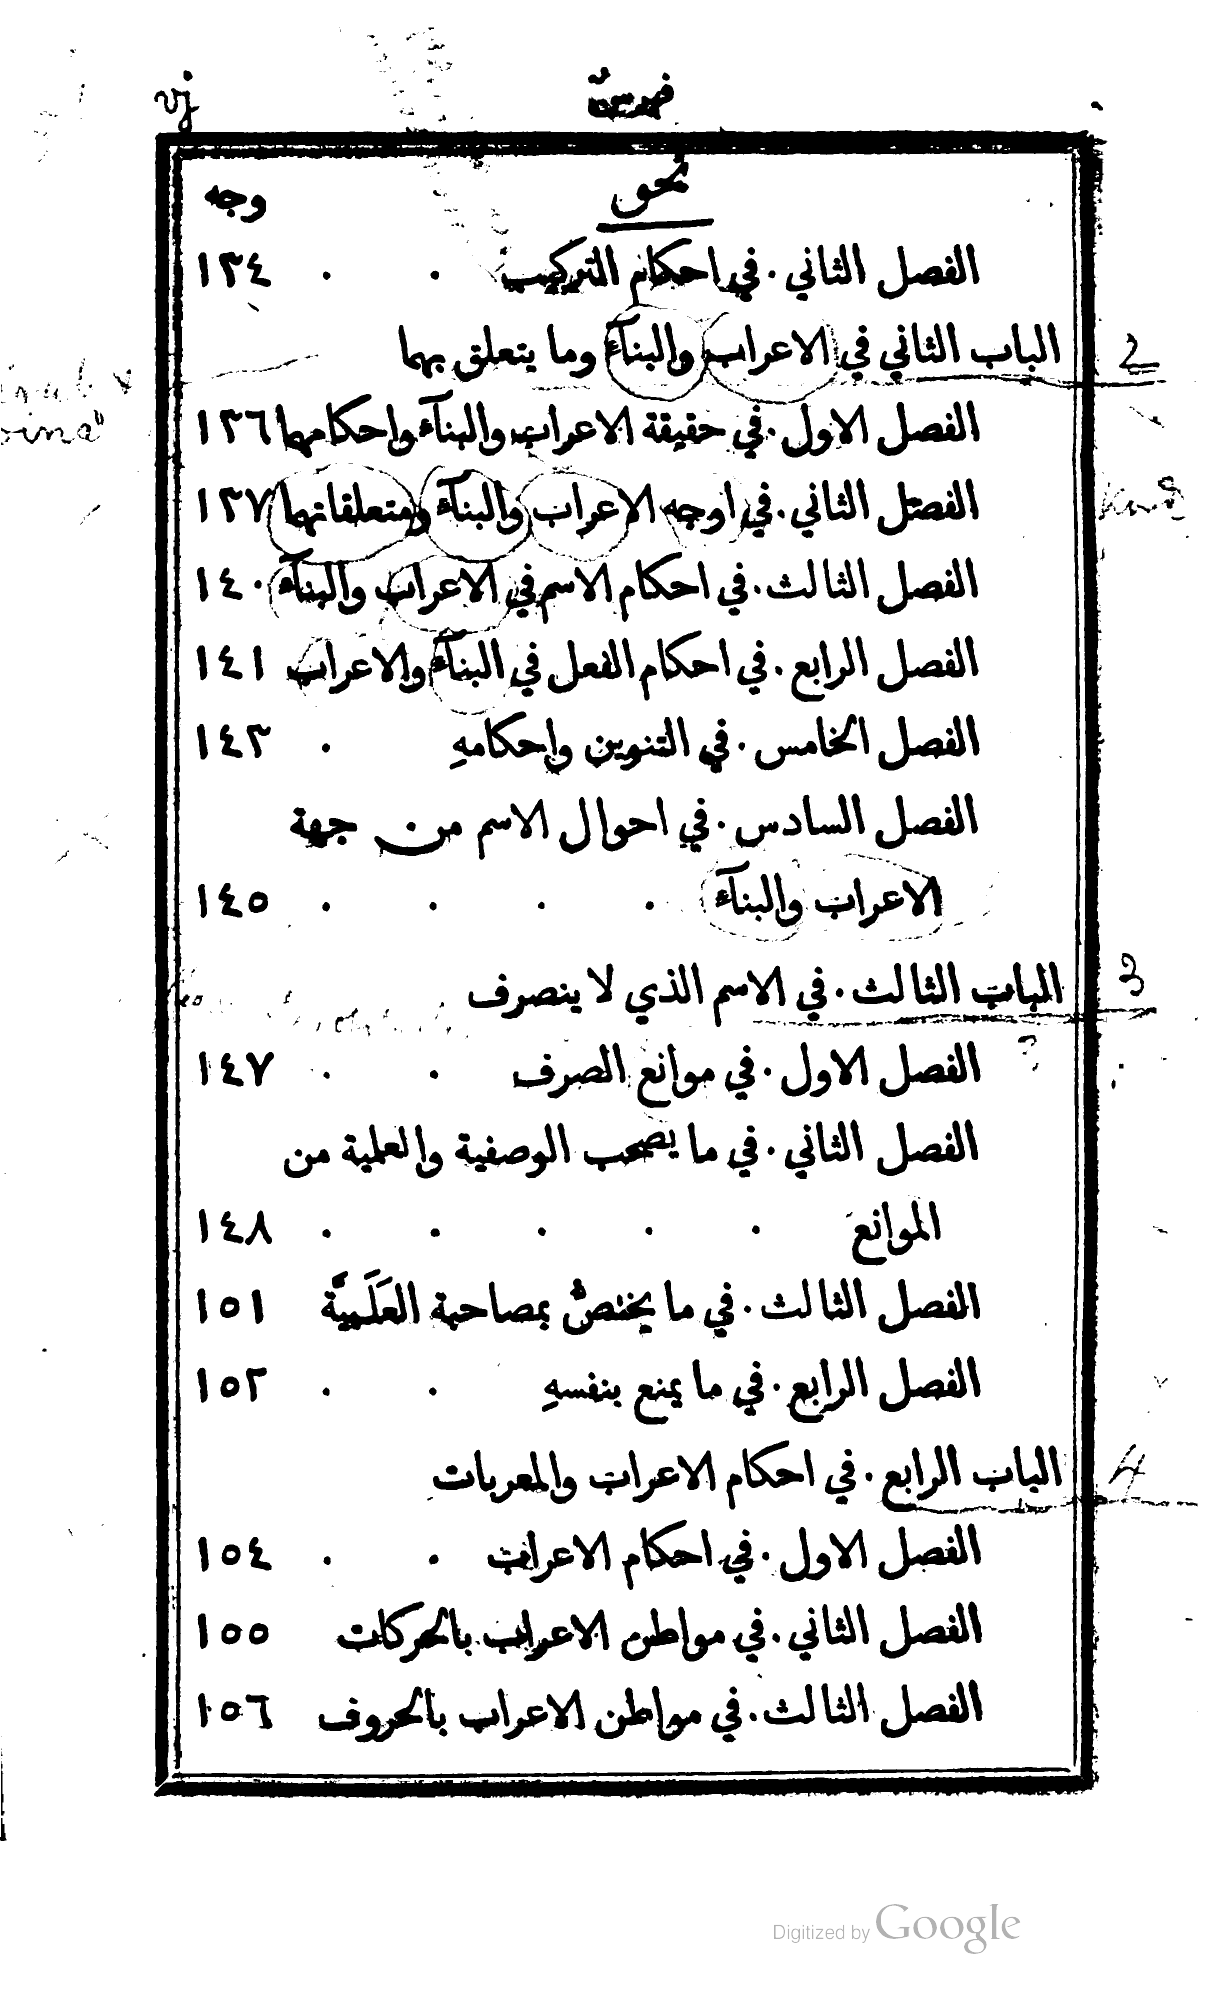 vj
فهرسٌ
نحو
وجه
الفصل الثاني ٠ في احكام التركيب ٠ ٠ ١٣٤
الباب الثاني في الاعراب والبنآء وما يتعلق بهما
2
الفصل الاول ٠ في حقيقة الاعراب والبنآء واحكامهما ١٣٦
الفصل الثاني ٠ في اوجه الاعراب والبنآء ومتعلقاتهما ١٣٧
الفصل الثالث ٠ في احكام الاسم في الاعراب والبنآء ١٤٠
الفصل الرابع ٠ في احكام الفعل في البنآء والاعراب ١٤١
الفصل الخامس ٠ في التنوين واحكامهِ ٠ ١٤٣
الفصل السادس ٠ في احوال الاسم من جهة
الاعراب والبنآء ٠ ٠ ٠ ٠ ١٤٥
الباب الثالث ٠ في الاسم الذي لا ينصرف
3
الفصل الاول ٠ في موانع الصرف ٠ ٠ ١٤٧
الفصل الثاني ٠ في ما يصحب الوصفية والعلمية من
الموانع ٠ ٠ ٠ ٠ ٠ ١٤٨
الفصل الثالث ٠ في ما يختصُّ بمصاحبة العَلَميَّة ١٥١
الفصل الرابع ٠ في ما يمنع بنفسهِ ٠ ٠ ١٥٢
الباب الرابع ٠ في احكام الاعراب والمعربات
4
الفصل الاول ٠ في احكام الاعراب ٠ ٠ ١٥٤
الفصل الثاني ٠ في مواطن الاعراب بالحركات ١٥٥
الفصل الثالث ٠ في مواطن الاعراب بالحروف ١٥٦
Digitized by Google